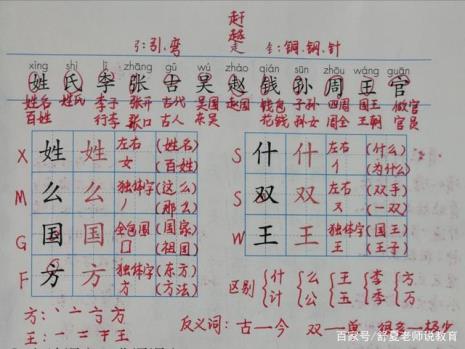 赶
越
弓:引.弯 走 钅:铜.钢.针
xìng shì lǐ zhāng gǔ wú zhào qián sūn zhōu wáng guān
姓 氏 李 张 古 吴 赵 钱 孙 周 王 官
姓名 姓氏 李子 张开 古代 吴国 赵国 钱包 子孙 四周 国王 做官
百姓 行李 张口 古人 东吴 花钱 孙女 周全 王朝 官员
X 姓 姓 左右 女 (姓名) (百姓) S 什 什 左右 亻 (什么) (为什么)
M 么 么 独体字 丿 (这么) (那么) S 双 双 左右 又 (双手) (一双)
G 国 国 全包围 囗 (国家) (祖国) W 王 王 独体字 王 (国王) (王子)
F 方 方 独体字 方 (东方) (方法) 区别 {什 计 {么 公 {王 玉 {李 季 {方 万
方: 丶 亠 方 方
王: 一 二 干 王 反义词: 古—今 双—单 很多—很少
百家号/舒夏老师说教育